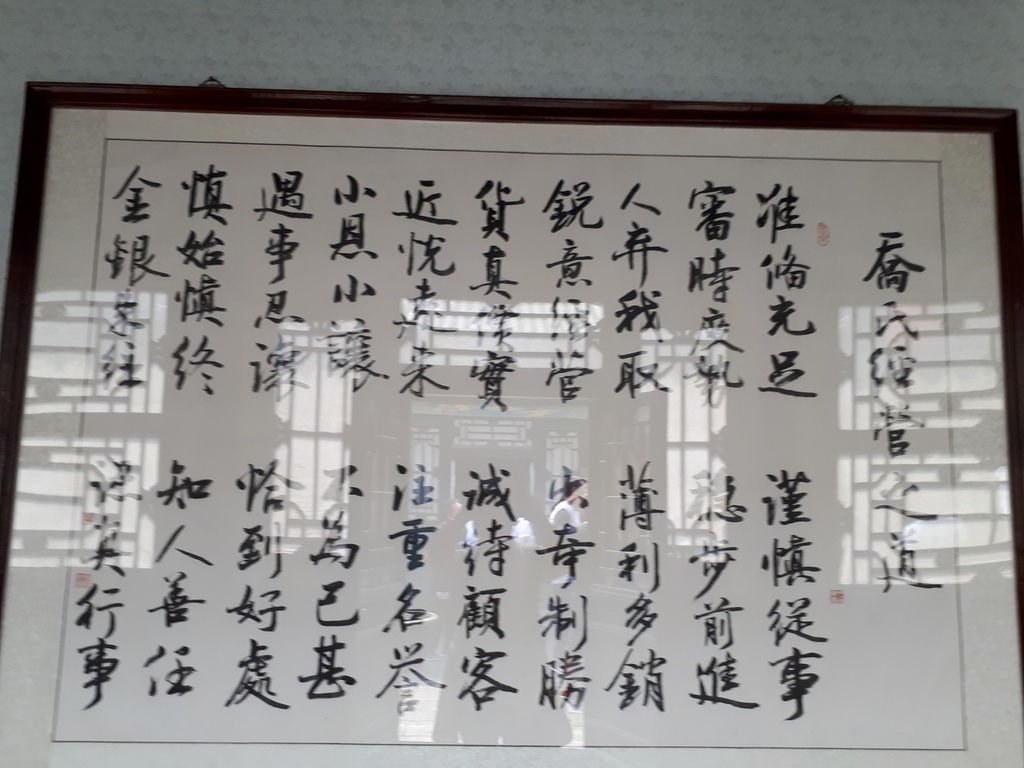 喬氏經營之道
准俻充足 谨慎從事
審時度勢 稳步前進
人弃我取 薄利多銷
鋭意經营 出奇制勝
貨真價實 誠待顧客
近悦远来 注重名誉
小恩小讓 不為已甚
遇事忍讓 恰到好處
慎始慎终 知人善任
金銀往 行事